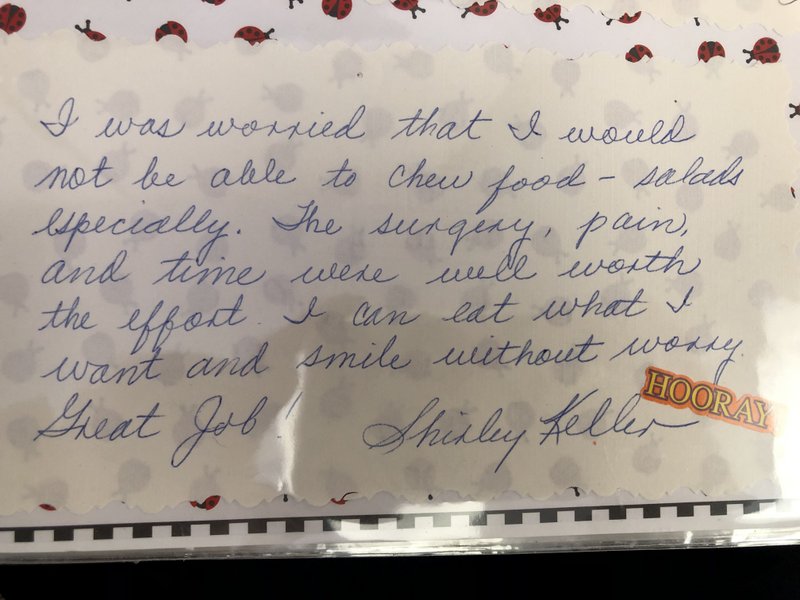 I was worried that I would
not be able to chew food - salads
especially. The surgery, pain,
and time were well worth
the effort. I can eat what I
want and smile without worry.
HOORAY
Great Job! Shirley Keller